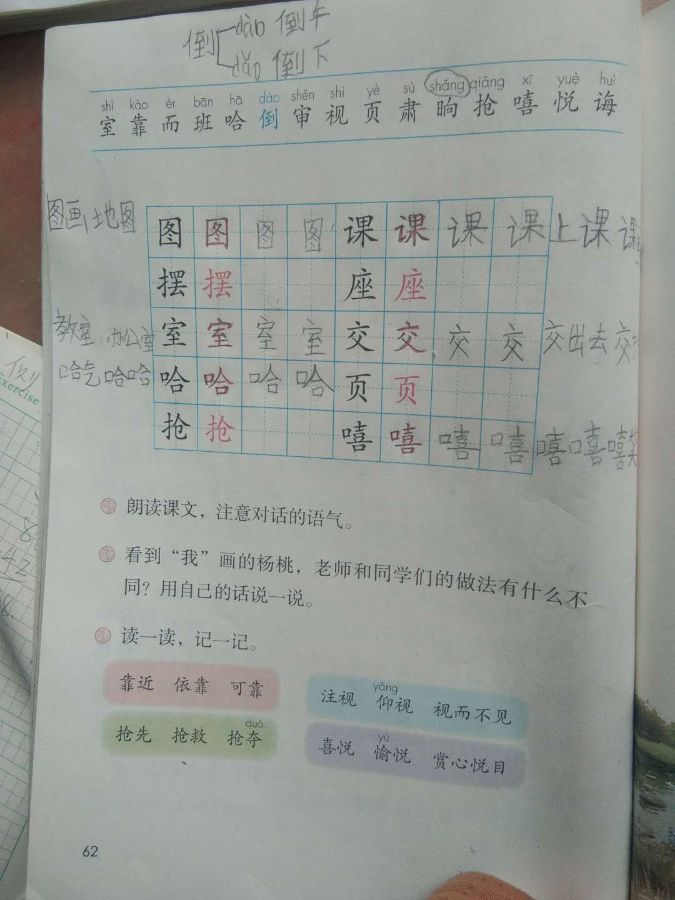 倒 dào 倒车
dǎo 倒下
shì kào ér bān hā dào shěn shì yè sù shǎng qiāng xī yuè huǐ
室 靠 而 班 哈 倒 审 视 页 肃 晌 抢 嘻 悦 诲
图画 地图 图 图 图 图 课 课 课 课 上课
摆 摆 座 座
教室 办公室 室 室 室 室 交 交 交 交 交出去
哈气 哈哈 哈 哈 哈 哈 页 页
抢 抢 嘻 嘻 嘻 嘻 嘻嘻 嘻笑
朗读课文，注意对话的语气。
看到“我”画的杨桃，老师和同学们的做法有什么不
同？用自己的话说一说。
读一读，记一记。
靠近 依靠 可靠
yǎng
注视 仰视 视而不见
duó
抢先 抢救 抢夺
yú
喜悦 愉悦 赏心悦目
62